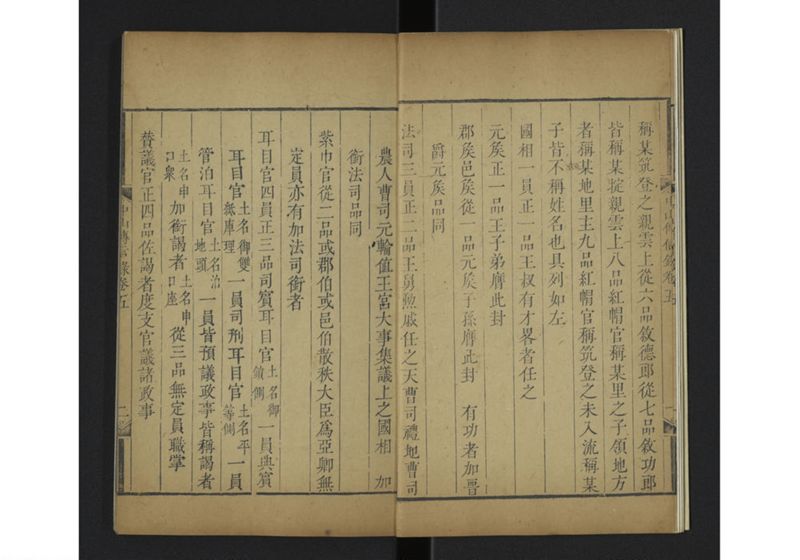 稱某筑登之親雲上從六品敘德郎從七品敘功郎
皆稱某掟親雲上八品紅帽官稱某里之子領地方
者稱某地里主九品紅帽官稱筑登之未入流稱某
子皆不稱姓名也具列如左
國相一員正一品王叔有才畧者任之
元矦正一品王子弟膺此封
郡矦邑矦從一品元矦子孫膺此封 有功者加晋
爵元矦品同
法司三員正二品王舅勲戚任之天曹司禮地曹司
農人曹司元輪值王宮大事集議上之國相 加
銜法司品同
紫巾官從二品或郡伯或邑伯散秩大臣爲亞卿無
定員亦有加法司銜者
耳目官四員正三品司賓耳目官土名御鎖側一員典寳
耳目官土名御雙紙庫理一員司刑耳目官土名平等側一員
管泊耳目官土名泊地頭一員皆預議政事皆稱謁者
土名申口衆加銜謁者土名申口座從三品無定員職掌
贊議官正四品佐謁者度支官議諸政事
中山傳信錄卷五 一
中山傳信錄卷五 二